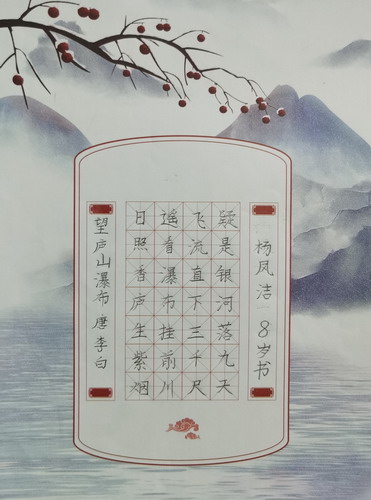 望庐山瀑布 唐 李白
日照香庐生紫烟
遥看瀑布挂前川
飞流直下三千尺
疑是银河落九天
杨凤洁 8岁书